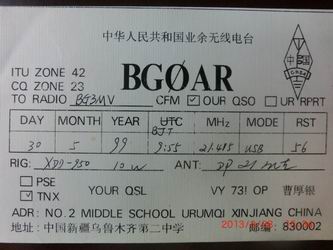 中华人民共和国业余无线电台
ITU ZONE 42
CQ ZONE 23
BGØAR
中国
CRSA
TO RADIO BG3MV CFM ☑ OUR QSO ☐ UR RPRT
DAY MONTH YEAR UTC MHz MODE RST
BJT
30 5 99 9:55 21.415 USB 56
RIG: 10W ANT: DP 21
☐ PSE
☑ TNX
YOUR QSL VY 73! OP 曹厚银
ADR: NO.2 MIDDLE SCHOOL URUMQI XINJIANG CHINA
地址: 中国新疆乌鲁木齐第二中学 邮编: 830002